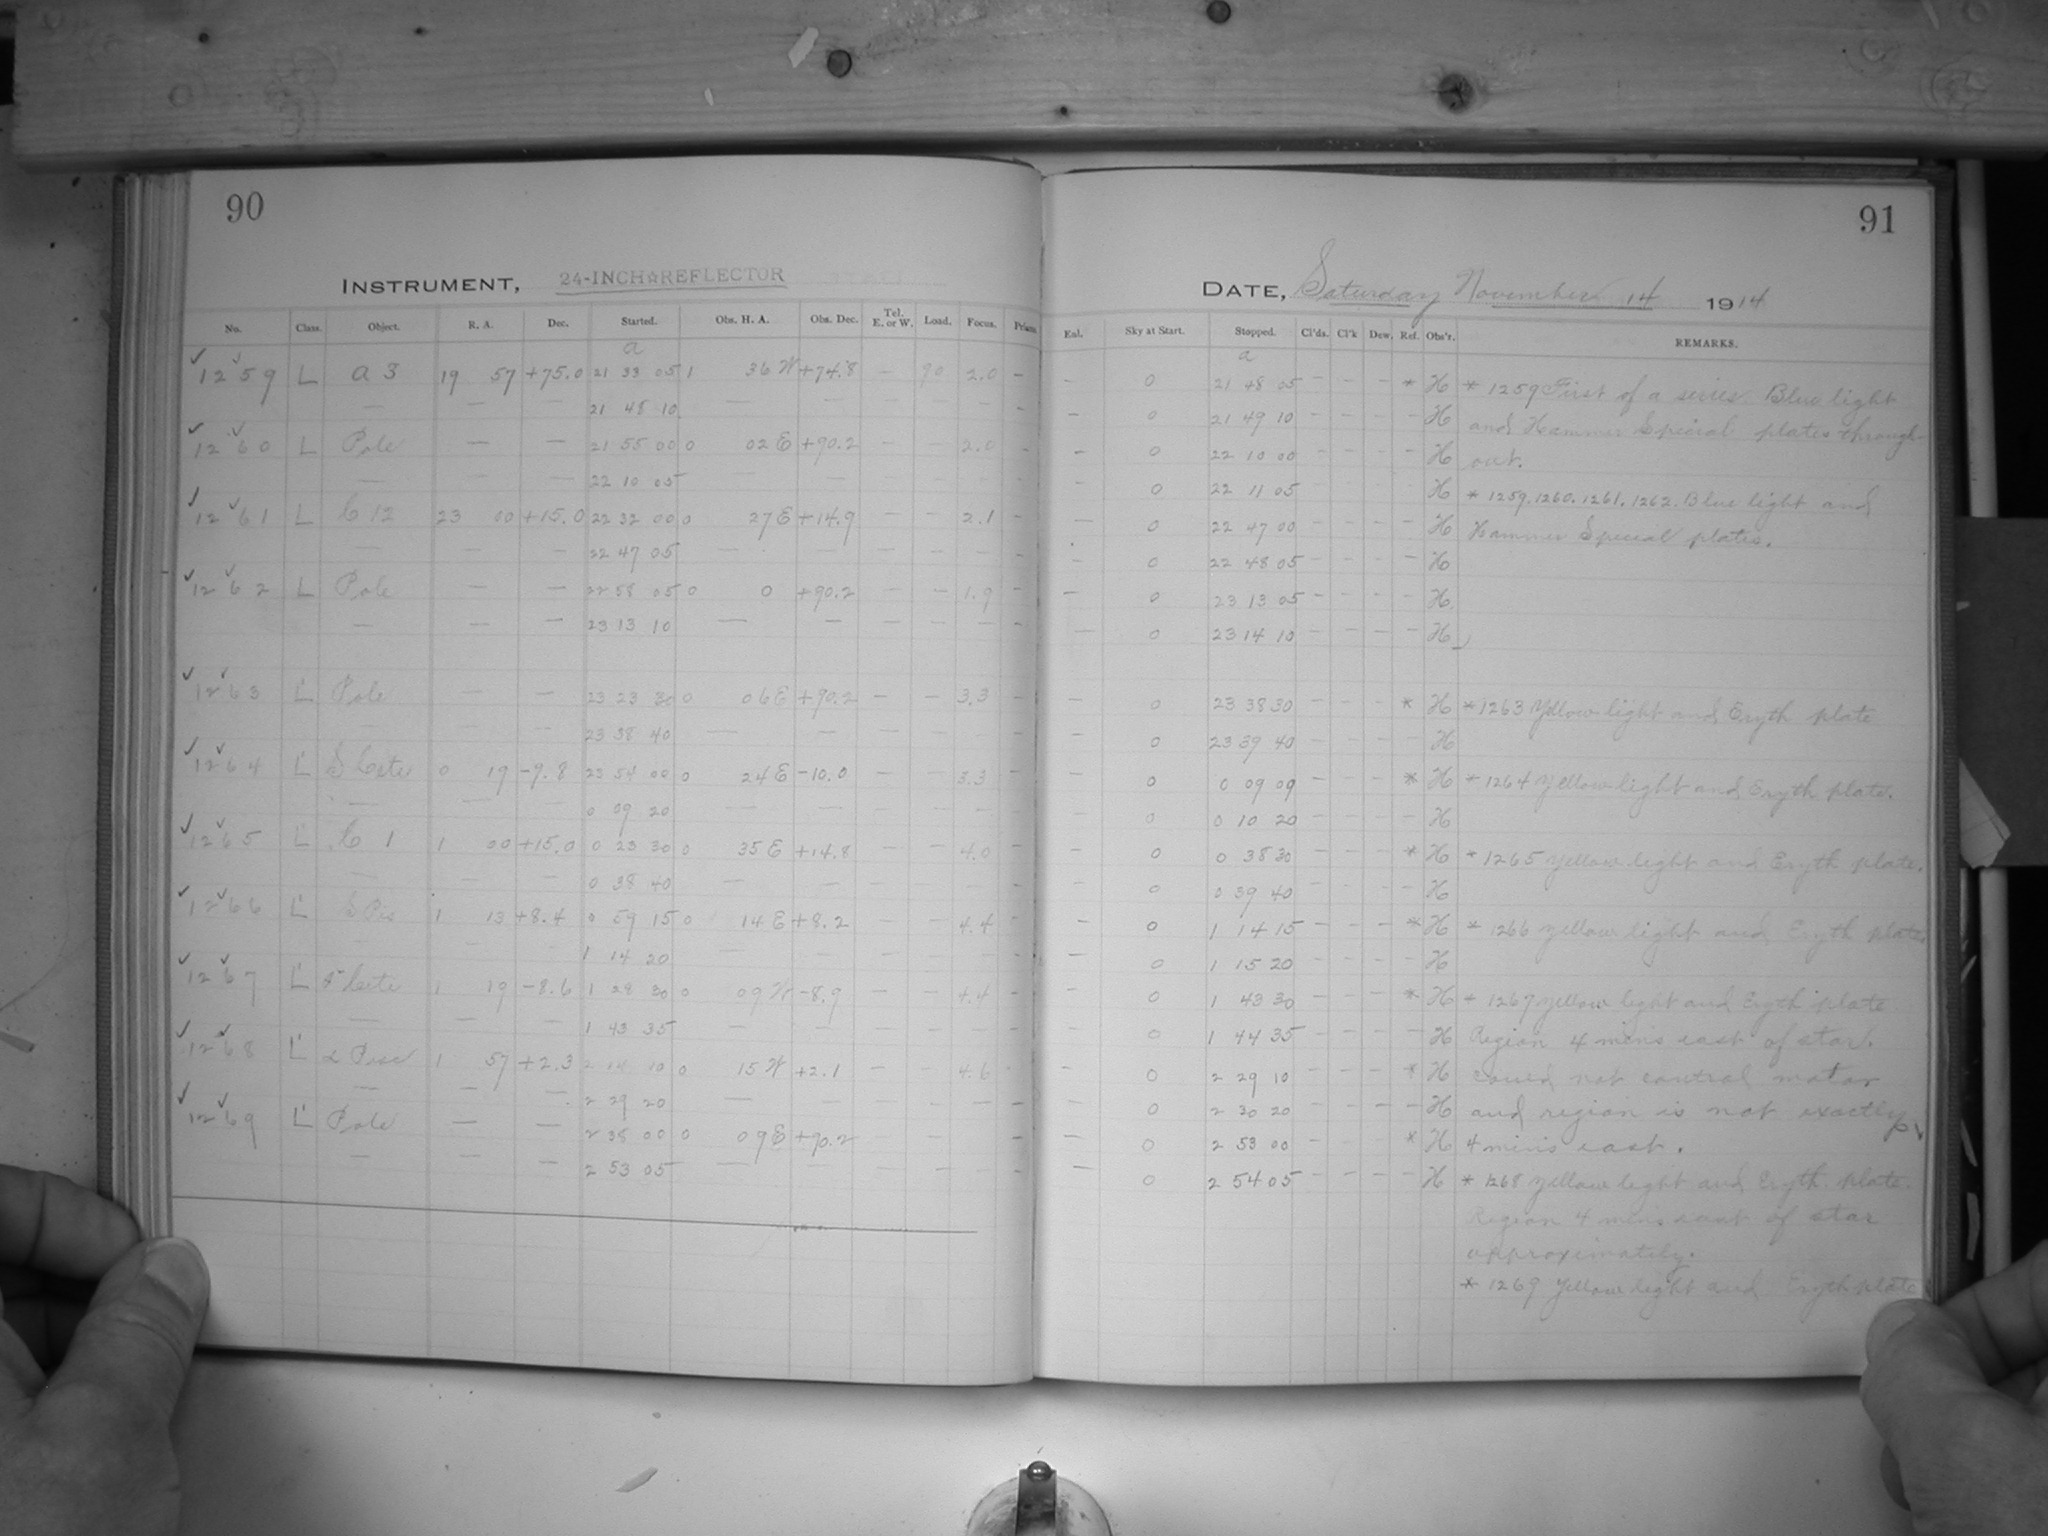 90
INSTRUMENT, 24-INCH☆REFLECTOR
No. Class. Object. R. A. Dec. Started. Obs. H. A. Obs. Dec. Tel. E. or W. Load. Focus. Prism
a
1259 L a 3 19 57 +75.0 21 33 05 1 36 W +74.8 — 90 2.0 –
— — — 21 48 10 — — — — — –
1260 L Pole — — 21 55 00 0 02 E +90.2 – – 2.0 –
— — — 22 10 05 — — — — — –
1261 L C 12 23 00 +15.0 22 32 00 0 27 E +14.9 – – 2.1 –
— — — 22 47 05 — — — — — –
1262 L Pole — — 22 58 05 0 0 +90.2 – – 1.9 –
— — — 23 13 10 — — — — — –
1263 L' Pole — — 23 23 30 0 06 E +90.2 – – 3.3 –
— — 23 38 40 — — — — — –
1264 L' S Ceti 0 19 -9.8 23 54 00 0 24 E -10.0 – – 3.3 –
— — — 0 09 20 — — — — —
1265 L' C 1 1 00 +15.0 0 23 30 0 35 E +14.8 – – 4.0 –
— — — 0 38 40 — — — — — –
1266 L' S Pis 1 13 +8.4 0 59 15 0 14 E +8.2 – – 4.4 –
— — — 1 14 20 — — — — — –
1267 L' Ceti 1 19 -8.6 1 28 30 0 09 W -8.9 – – 4.4 –
— — — 1 43 35 — — — — — –
1268 L' α Pisc 1 57 +2.3 2 14 10 0 15 W +2.1 – – 4.6
— — — 2 29 20 — — — — — –
1269 L' Pole — — 2 38 00 0 09 E +90.2 – – –
— — — 2 53 05 — — — — — –
91
DATE, Saturday November 14 1914
Enl. Sky at Start. Stopped. Cl'ds. Cl'k Dew. Ref. Obs'r. REMARKS.
a
– 0 21 48 05 – – – * H * 1259 First of a series Blue light
– 0 21 49 10 – – – – H and Hammer Special plates through-
– 0 22 10 00 – – – – H out.
– 0 22 11 05 – – – – H * 1259. 1260. 1261. 1262. Blue light and
– 0 22 47 00 – – – – H Hammer Special plates.
– 0 22 48 05 – – – – H
– 0 23 13 05 – – – – H
– 0 23 14 10 – – – – H
– 0 23 38 30 – – – * H * 1263 Yellow light and Eryth plate
– 0 23 39 40 – – – – H
– 0 0 09 09 – – – * H * 1264 Yellow light and Eryth plate.
– 0 0 10 20 – – – – H
– 0 0 38 30 – – – * H * 1265 Yellow light and Eryth plate.
– 0 0 39 40 – – – – H
– 0 1 14 15 – – – * H * 1266 Yellow light and Eryth plate
– 0 1 15 20 – – – – H
– 0 1 43 30 – – – * H * 1267 Yellow light and Eryth plate
– 0 1 44 35 – – – – H Region 4 mins east of star.
– 0 2 29 10 – – – * H could not control motor
– 0 2 30 20 – – – – H and region is not exactly
– 0 2 53 00 – – – * H 4 mins east.
– 0 2 54 05 – – – – H * 1268 Yellow light and Eryth plate.
Region 4 mins east of star
approximately.
* 1269 Yellow light and Eryth plate